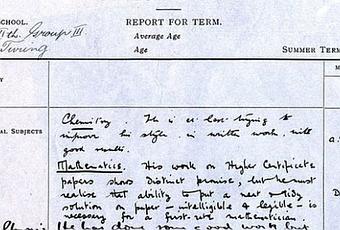 SCHOOL.
REPORT FOR TERM.
Group III
Average Age
Turing
Age
SUMMER TERM
M
Y
Chemistry. He is at last trying to
AL SUBJECTS
improve his style in written work, with
good results.
Mathematics. His work on Higher Certificate
papers shows distinct promise, but he must
realise that ability to put a neat & tidy
solution on paper – intelligible & legible – is
necessary for a first-rate mathematician.
He has done some good work but